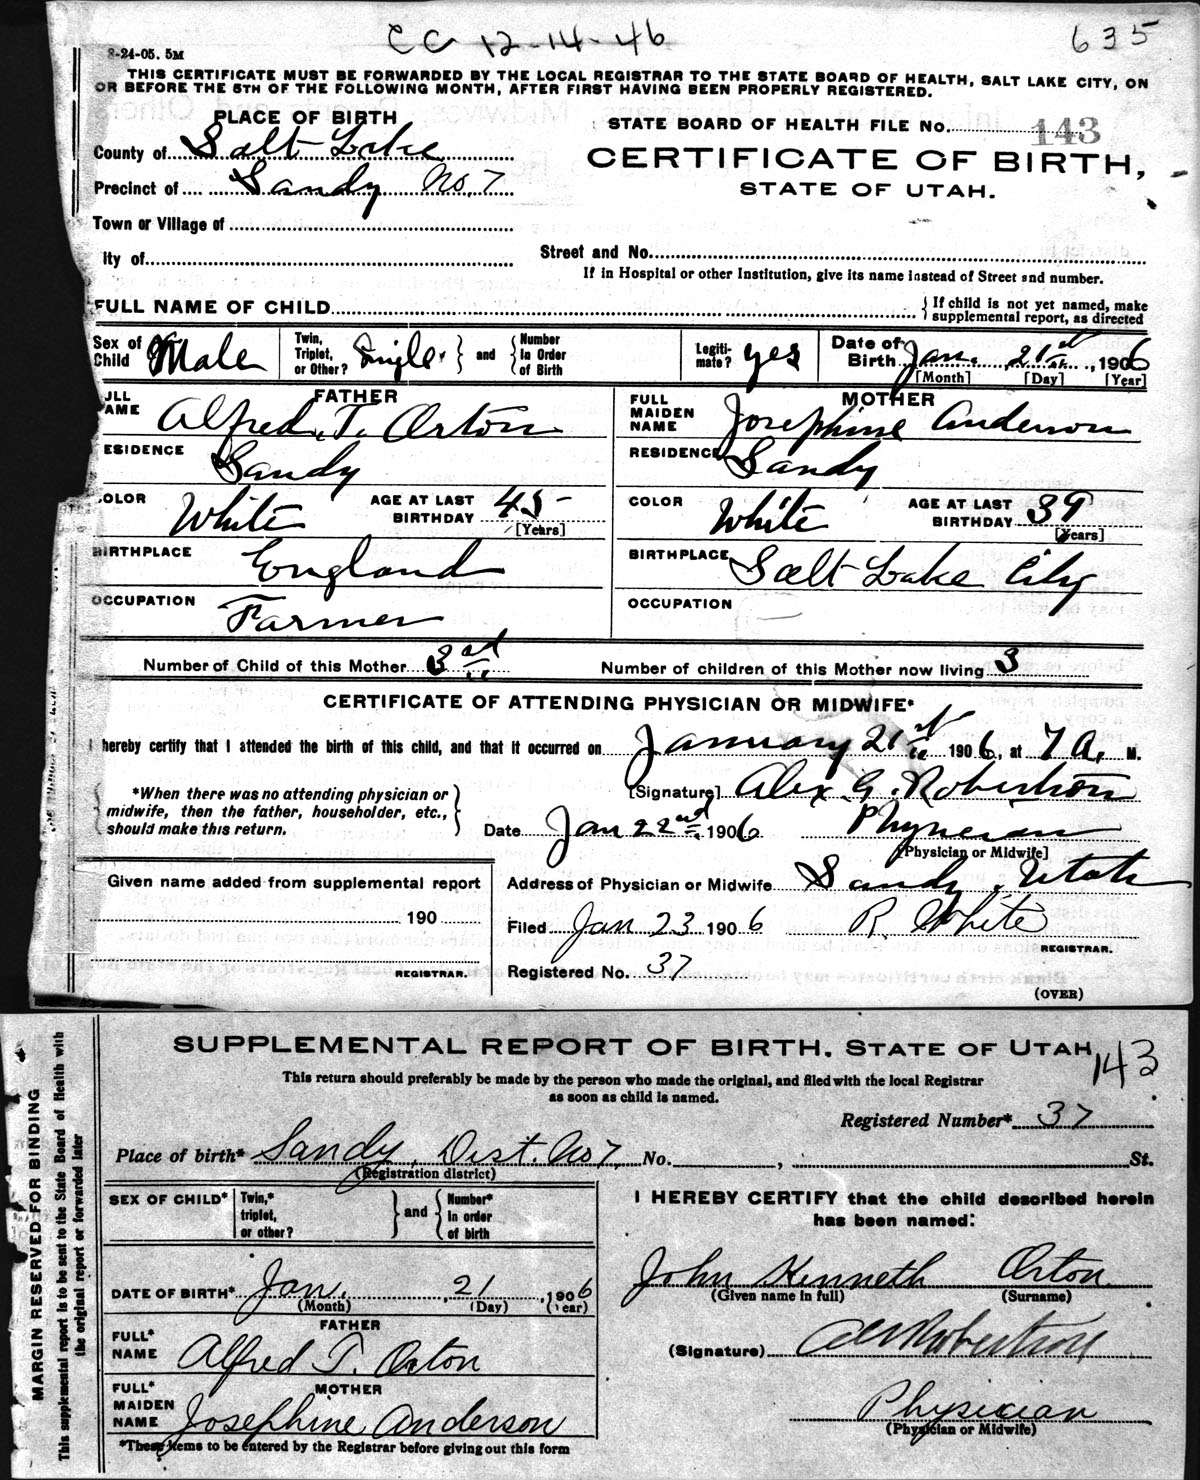 CC 12-14-46
635
8-24-05. 5M
THIS CERTIFICATE MUST BE FORWARDED BY THE LOCAL REGISTRAR TO THE STATE BOARD OF HEALTH, SALT LAKE CITY, ON
OR BEFORE THE 5TH OF THE FOLLOWING MONTH, AFTER FIRST HAVING BEEN PROPERLY REGISTERED.
PLACE OF BIRTH
STATE BOARD OF HEALTH FILE No. 143
County of Salt Lake
CERTIFICATE OF BIRTH,
Precinct of Sandy No. 7
STATE OF UTAH.
Town or Village of
ity of
Street and No.
If in Hospital or other Institution, give its name instead of Street and number.
FULL NAME OF CHILD
If child is not yet named, make
supplemental report, as directed
Sex of Child Male
Twin, Triplet, or Other? Single and Number In Order of Birth
Legiti-mate? yes
Date of Birth Jan. 21st, 1906
[Month] [Day] [Year]
FATHER
MOTHER
ULL AME Alfred T. Orton
FULL MAIDEN NAME Josephine Anderson
ESIDENCE Sandy
RESIDENCE Sandy
OLOR White AGE AT LAST BIRTHDAY 45 [Years]
COLOR White AGE AT LAST BIRTHDAY 39 [Years]
BIRTHPLACE England
BIRTHPLACE Salt Lake City
OCCUPATION Farmer
OCCUPATION
Number of Child of this Mother 3rd
Number of children of this Mother now living 3
CERTIFICATE OF ATTENDING PHYSICIAN OR MIDWIFE*
I hereby certify that I attended the birth of this child, and that it occurred on January 21st 1906, at 7 A. M.
*When there was no attending physician or
midwife, then the father, householder, etc.,
should make this return.
[Signature] Alex G. Robertson
Date Jan 22nd 1906 Physician
[Physician or Midwife]
Given name added from supplemental report
190
REGISTRAR.
Address of Physician or Midwife Sandy, Utah
Filed Jan 23 1906 R. White
REGISTRAR.
Registered No. 37
(OVER)
MARGIN RESERVED FOR BINDING
This supplemental report is to be sent to the State Board of Health with
the original report or forwarded later
SUPPLEMENTAL REPORT OF BIRTH, STATE OF UTAH
143
This return should preferably be made by the person who made the original, and filed with the local Registrar
as soon as child is named.
Registered Number* 37
Place of birth* Sandy, Dist. No 7 No. , St.
(Registration district)
SEX OF CHILD* Twin,* triplet, or other? and Number* In order of birth
I HEREBY CERTIFY that the child described herein
has been named:
DATE OF BIRTH* Jan. 21, 1906
(Month) (Day) (Year)
John Kenneth Orton
(Given name in full) (Surname)
FATHER
FULL* NAME Alfred T. Orton
(Signature) AG Robertson
MOTHER
FULL* MAIDEN NAME Josephine Anderson
Physician
(Physician or Midwife)
*These items to be entered by the Registrar before giving out this form